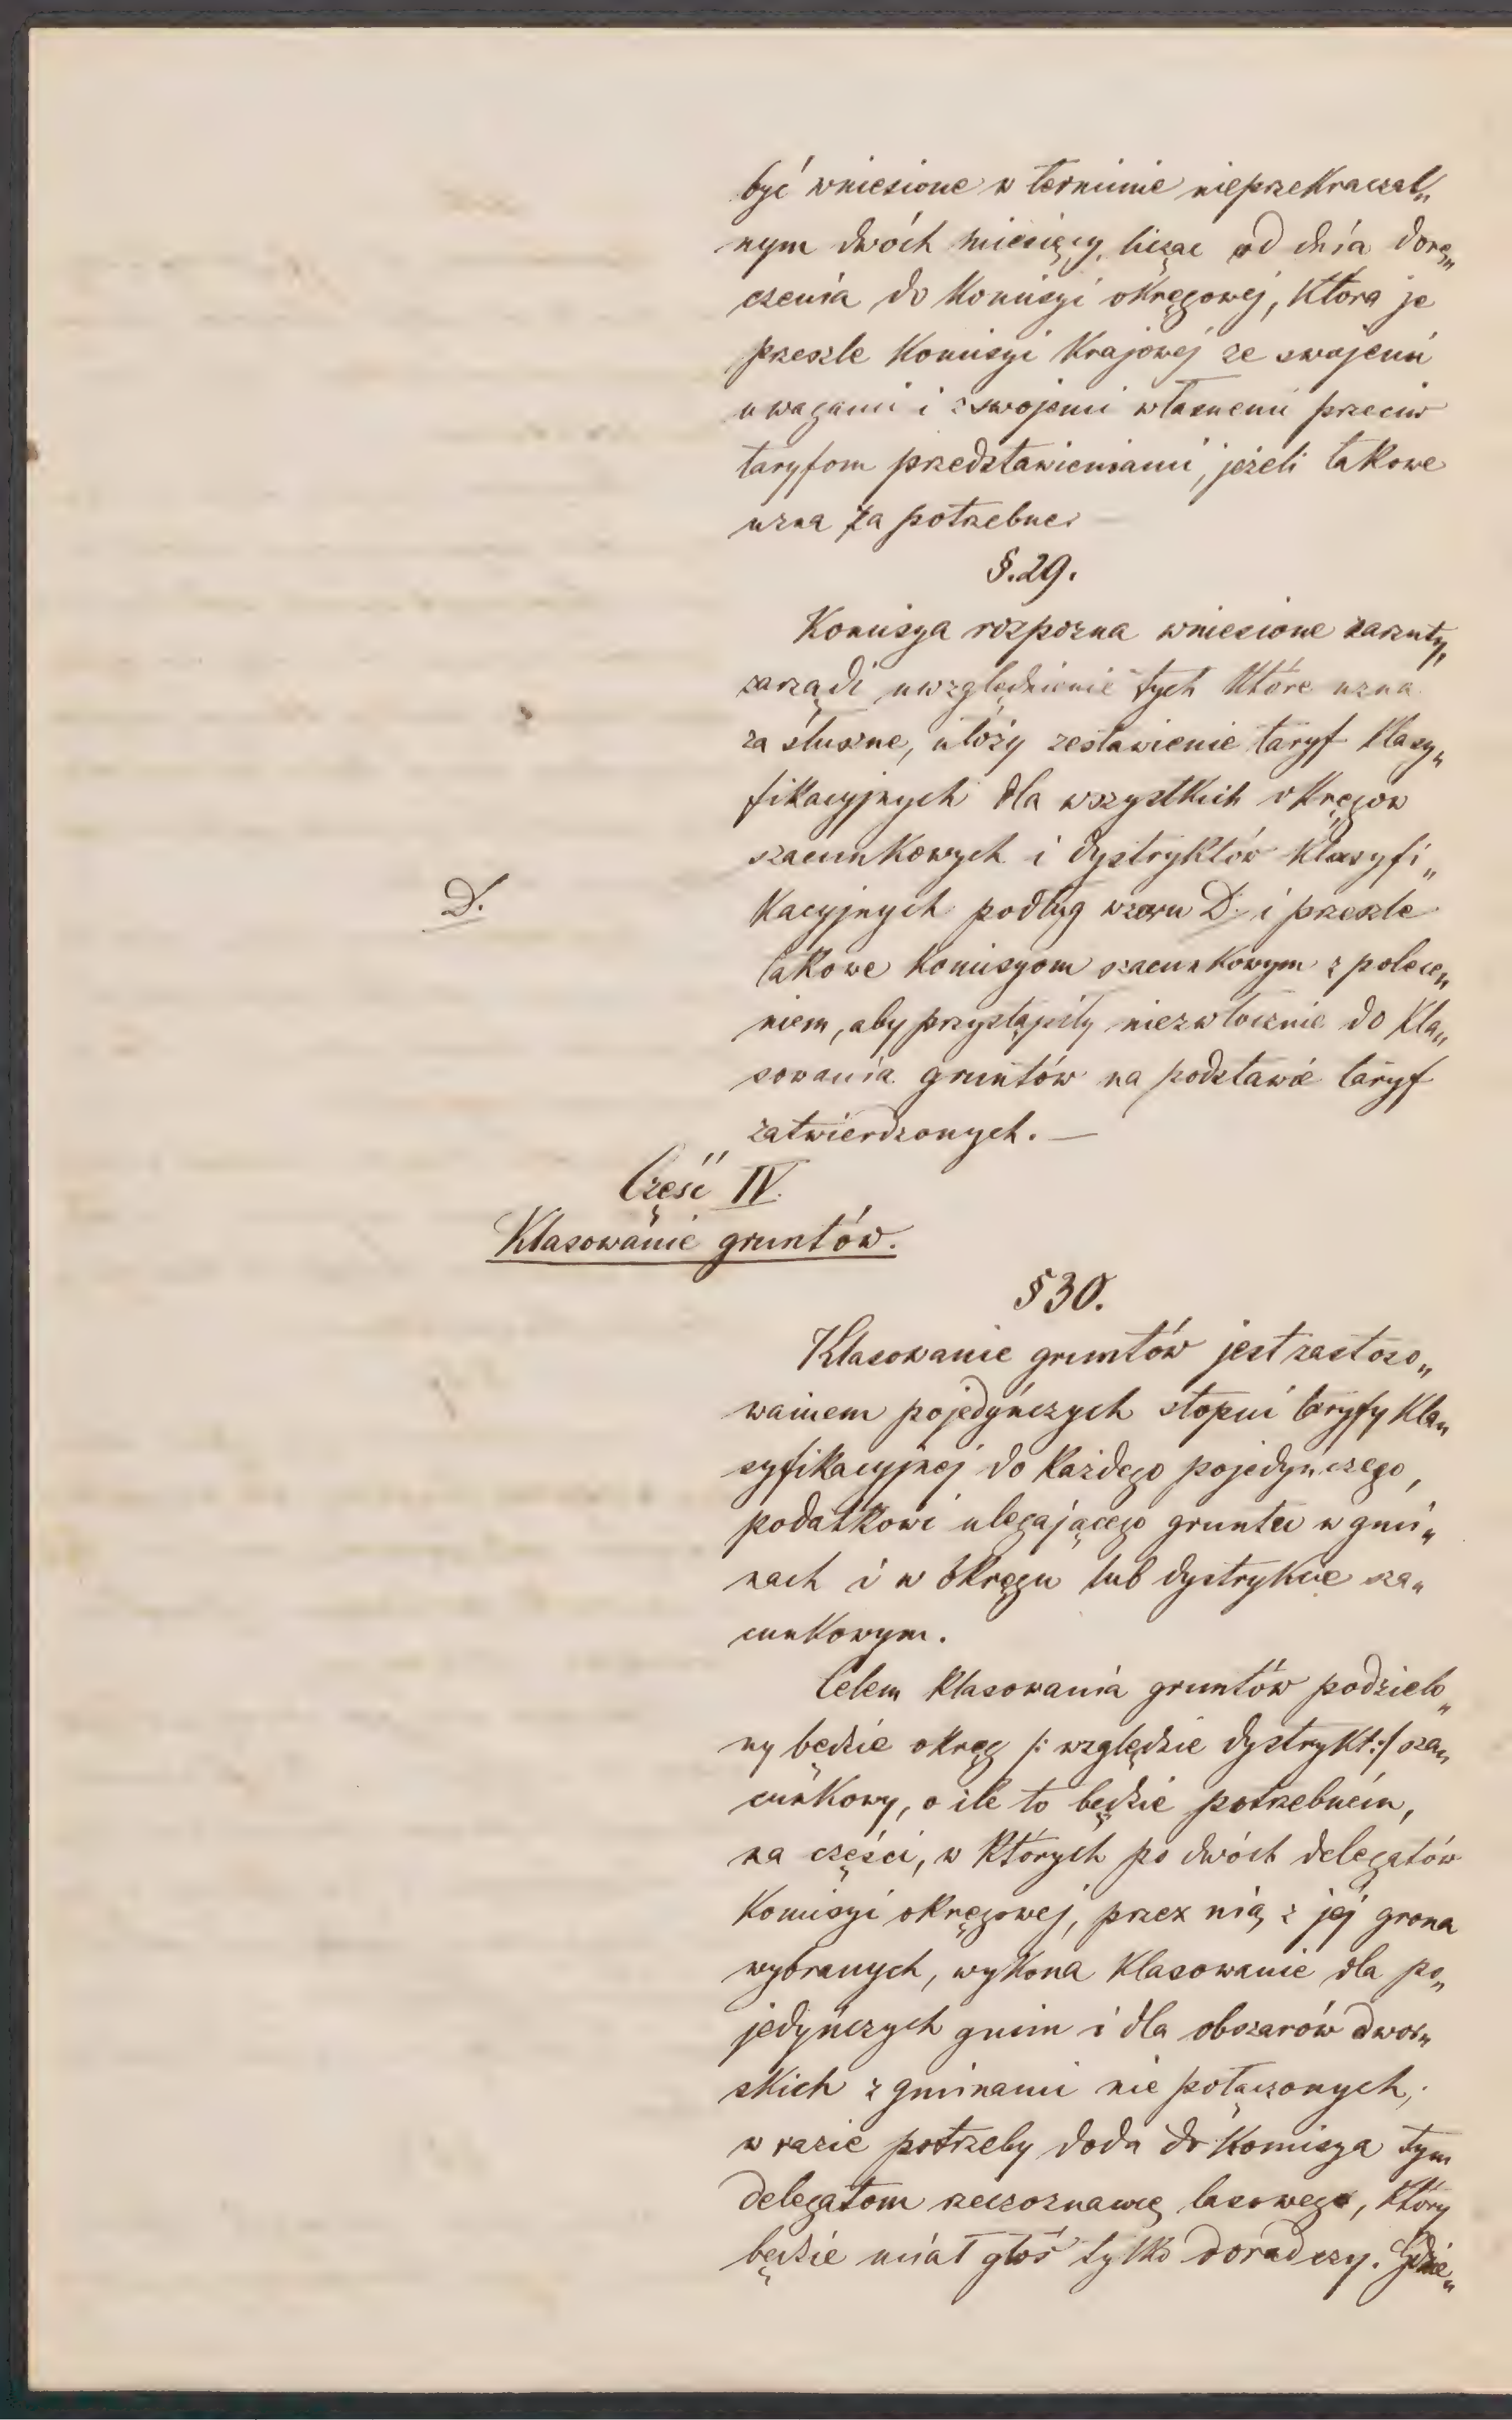 być wniesione w terminie nieprzekraczal„
nym dwóch miesięcy, licząc od dnia dorę„
czenia do Komisyi okręgowej, która je
prześle Komisyi Krajowej ze swojemi
uwagami i z swojemi własnemi przeciw
taryfom przedstawieniami, jeżeli takowe
uzna za potrzebne. —
§. 29.
Komisya rozpozna wniesione zarzuty,
zarządzi uwzględnienie tych które uzna
za słuszne, ułoży zestawienie taryf klasy„
fikacyjnych dla wszystkich okręgów
szacunkowych i dystryktów klasyfi„
kacyjnych podług wzoru D. i prześle
D.
takowe Komisyom szacunkowym z polece„
niem, aby przystąpiły niezwłocznie do kla„
sowania gruntów na podstawie taryf
zatwierdzonych. —
Część IV.
Klasowanie gruntów.
§ 30.
Klasowanie gruntów jest zastoso„
waniem pojedyńczych stopni taryfy kla„
syfikacyjnej do każdego pojedyńczego,
podatkowi ulegającego gruntu w gmi„
nach i w okręgu lub dystrykcie sza„
cunkowym.
Celem klasowania gruntów podzielo„
ny będzie okręg /: względzie dystrykt :/ sza„
cunkowy, o ile to będzie potrzebném,
na części, w których po dwóch delegatów
Komisyi okręgowej, przez nią z jej grona
wybranych, wykona klasowanie dla po„
jedyńczych gmin i dla obszarów dwor„
skich z gminami nie połączonych,
w razie potrzeby doda do Komisya tym
delegatom rzeczoznawcę lasowego, który
będzie miał głos tylko doradczy. Gdzie„